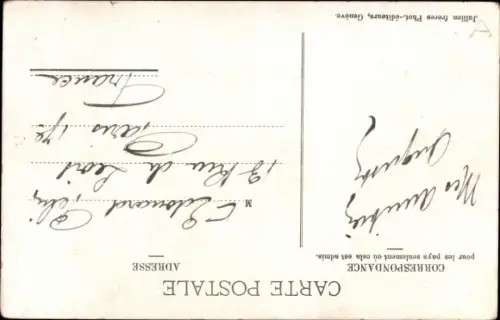 CARTE POSTALE
CORRESPONDANCE
pour les pays seulement où cela est admis.
Mes amitiés
Auguste
ADRESSE
M Edouard
13 Rue de
Paris 17e
France
Jullien frères Phot.-éditeurs, Genève.